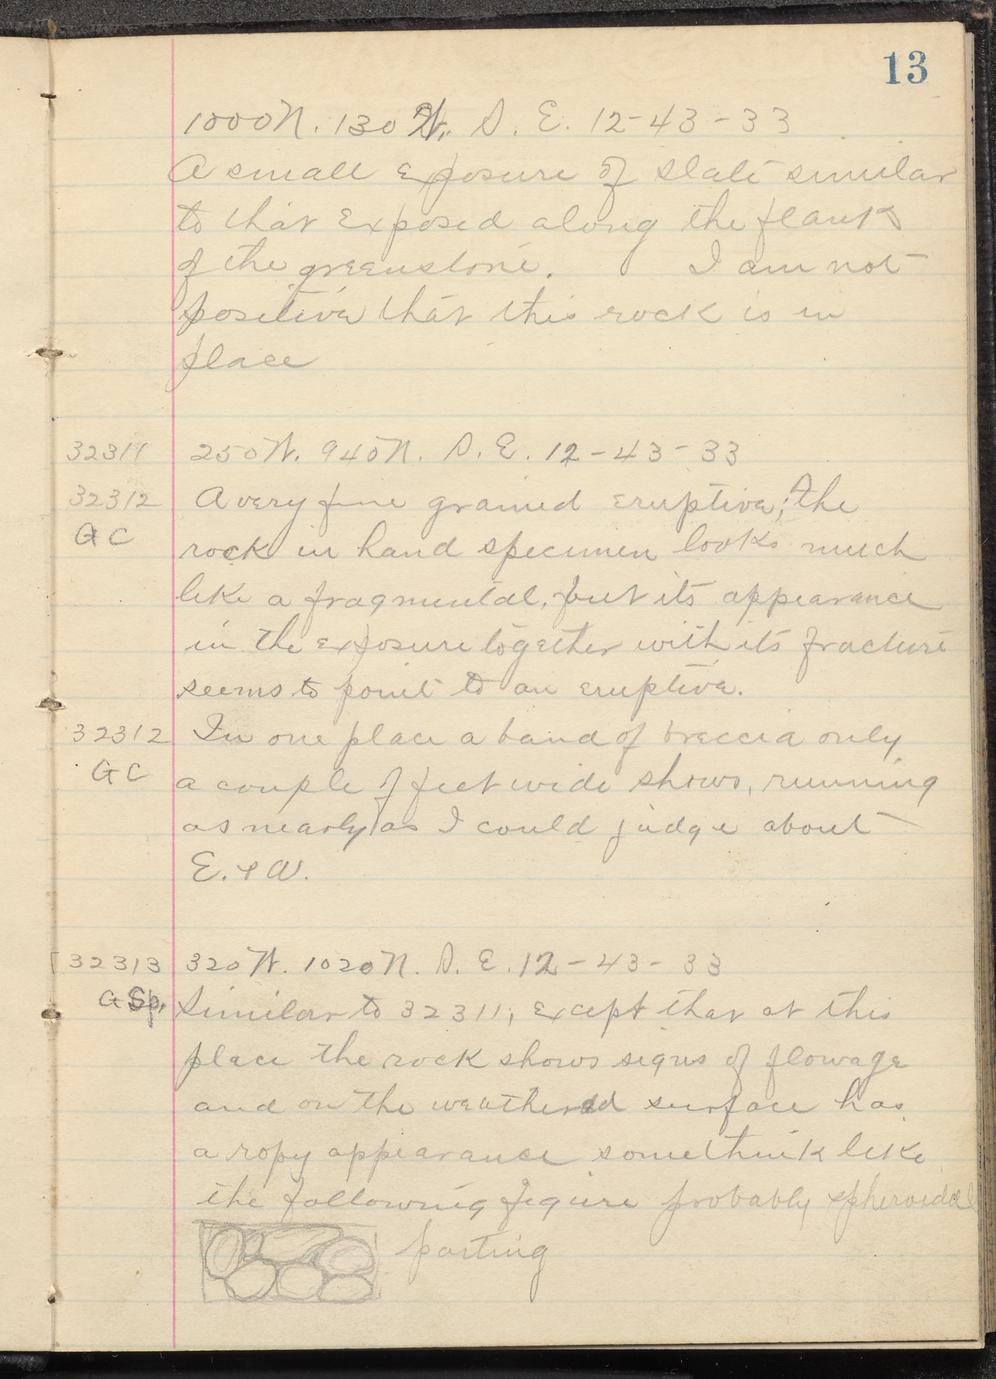 13
1000 N. 130 W. S. E. 12-43-33
A small exposure of slate similar
to that exposed along the flank
of the greenstone. I am not
positive that this rock is in
place
32311 250 W. 940 N. S. E. 12-43-33
32312 A very fine grained eruptive; the
GC rock in hand specimen looks much
like a fragmental, but its appearance
in the exposure together with its fracture
seems to point to an eruptive.
32312 In one place a band of breccia only
GC a couple of feet wide shows, running
as nearly as I could judge about
E. & W.
32313 320 W. 1020 N. S. E. 12-43-33
G Sp. Similar to 32311, except that at this
place the rock shows signs of flowage
and on the weathered surface has
a ropy appearance somethink like
the following figure probably spheroidal
parting